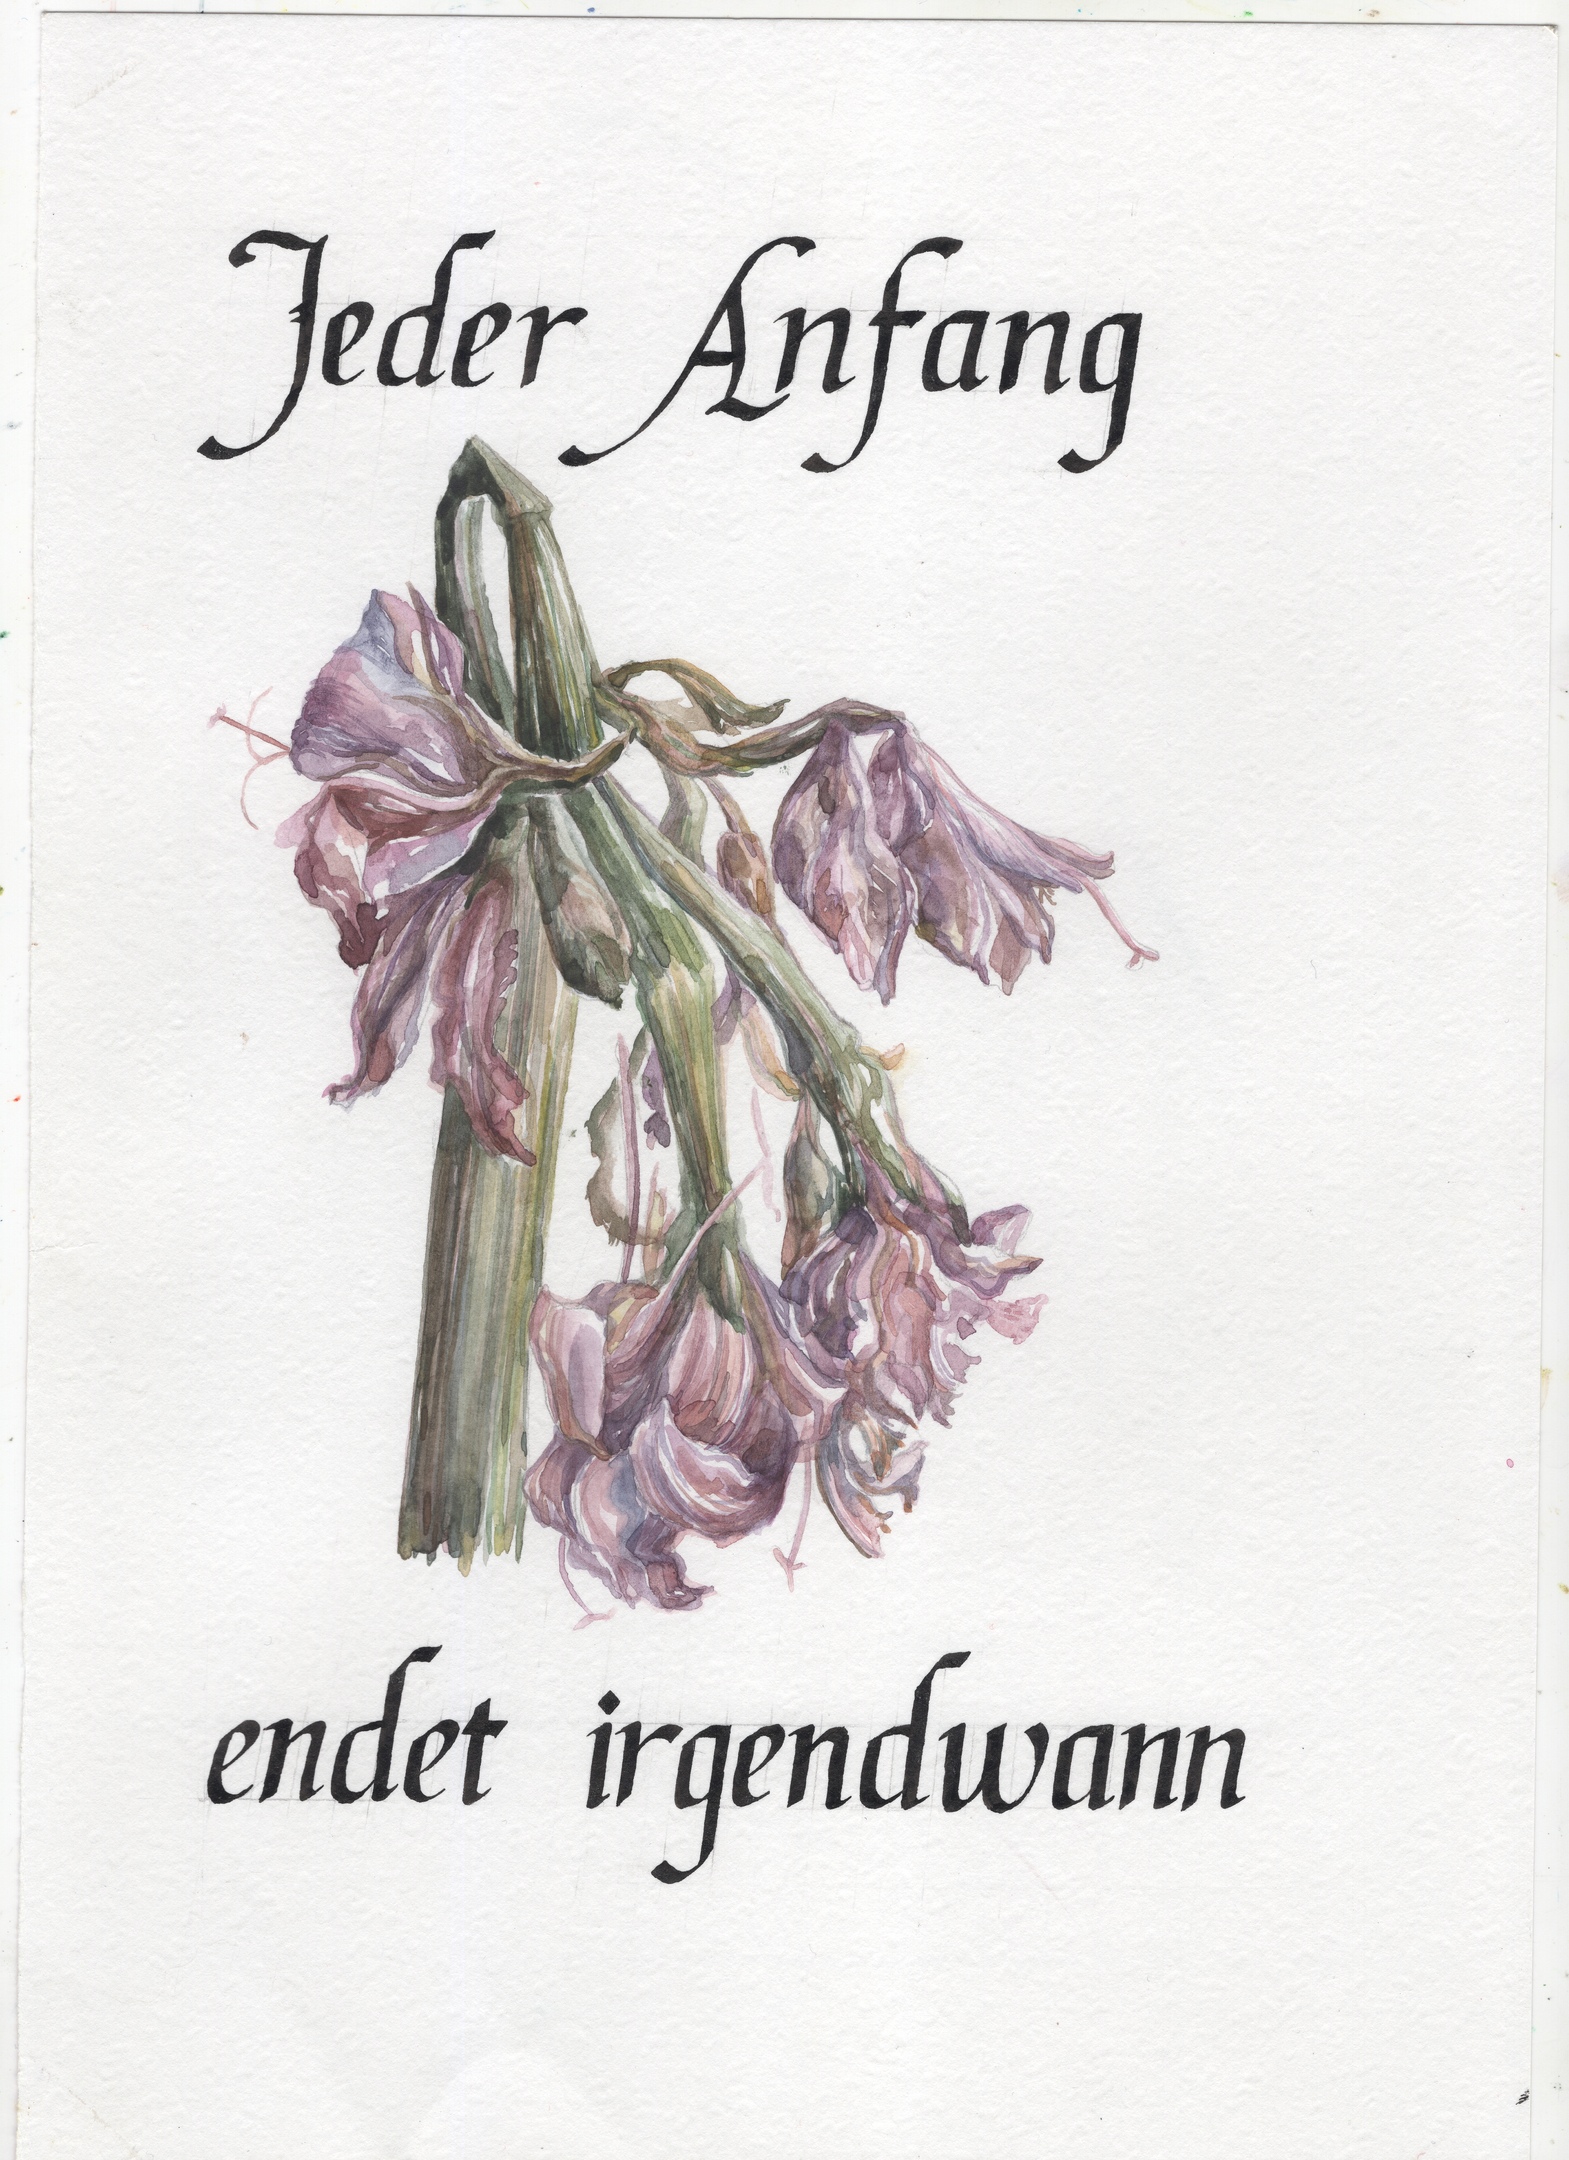 Jeder Anfang
endet irgendwann